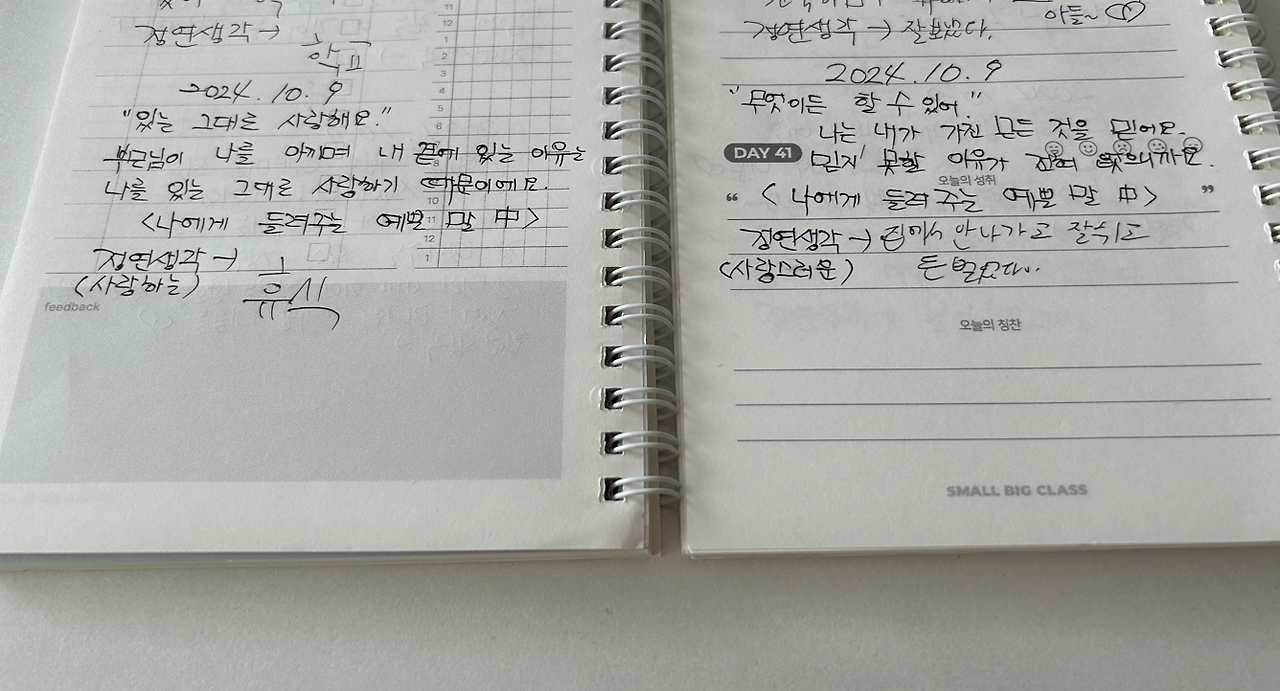 정연생각 →
학교
2024. 10. 9
"있는 그대로 사랑해요."
부모님이 나를 아끼며 내 곁에 있는 이유는
나를 있는 그대로 사랑하기 때문이에요.
<나에게 들려주는 예쁜 말 中>
정연생각 →
(사랑하는)
휴식
feedback
11
12
1
2
3
4
5
6
8
10
11
12
1
아들~
정연생각 → 잘보냈다.
2024. 10. 9
"무엇이든 할 수 있어."
나는 내가 가진 모든 것을 믿어요.
DAY 41
믿지 못할 이유가 전혀 없으니까요.
오늘의 성취
“ <나에게 들려주는 예쁜 말 中> ”
정연생각 → 집에서 안나가고 잘쉬고
(사랑스러운) 돈 벌었다.
오늘의 칭찬
SMALL BIG CLASS